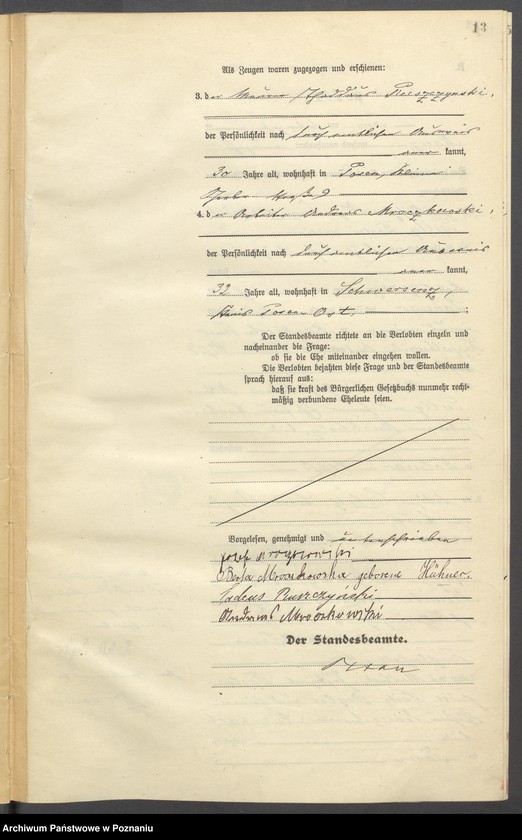 13
Als Zeugen waren zugezogen und erschienen:
3. der Maurer Thaddäus Ruszczynski,
der Persönlichkeit nach durch amtlichen Ausweis
aner kannt,
30 Jahre alt, wohnhaft in Posen, Kleine
Gerber Straße 9
4. der Arbeiter Andreas Mroczkowski,
der Persönlichkeit nach durch amtlichen Ausweis
aner kannt,
32 Jahre alt, wohnhaft in Schwersenz,
Kreis Posen Ost.
Der Standesbeamte richtete an die Verlobten einzeln und
nacheinander die Frage:
ob sie die Ehe miteinander eingehen wollen.
Die Verlobten bejahten diese Frage und der Standesbeamte
sprach hierauf aus:
daß sie kraft des Bürgerlichen Gesetzbuchs nunmehr recht-
mäßig verbundene Eheleute seien.
Vorgelesen, genehmigt und unterschrieben
Józef Mroczkowski
Berta Mroczkowska geborene Hühner.
Tadeus Ruszczyński
Andreas Mroczkowski
Der Standesbeamte.
Archiwum Państwowe w Poznaniu